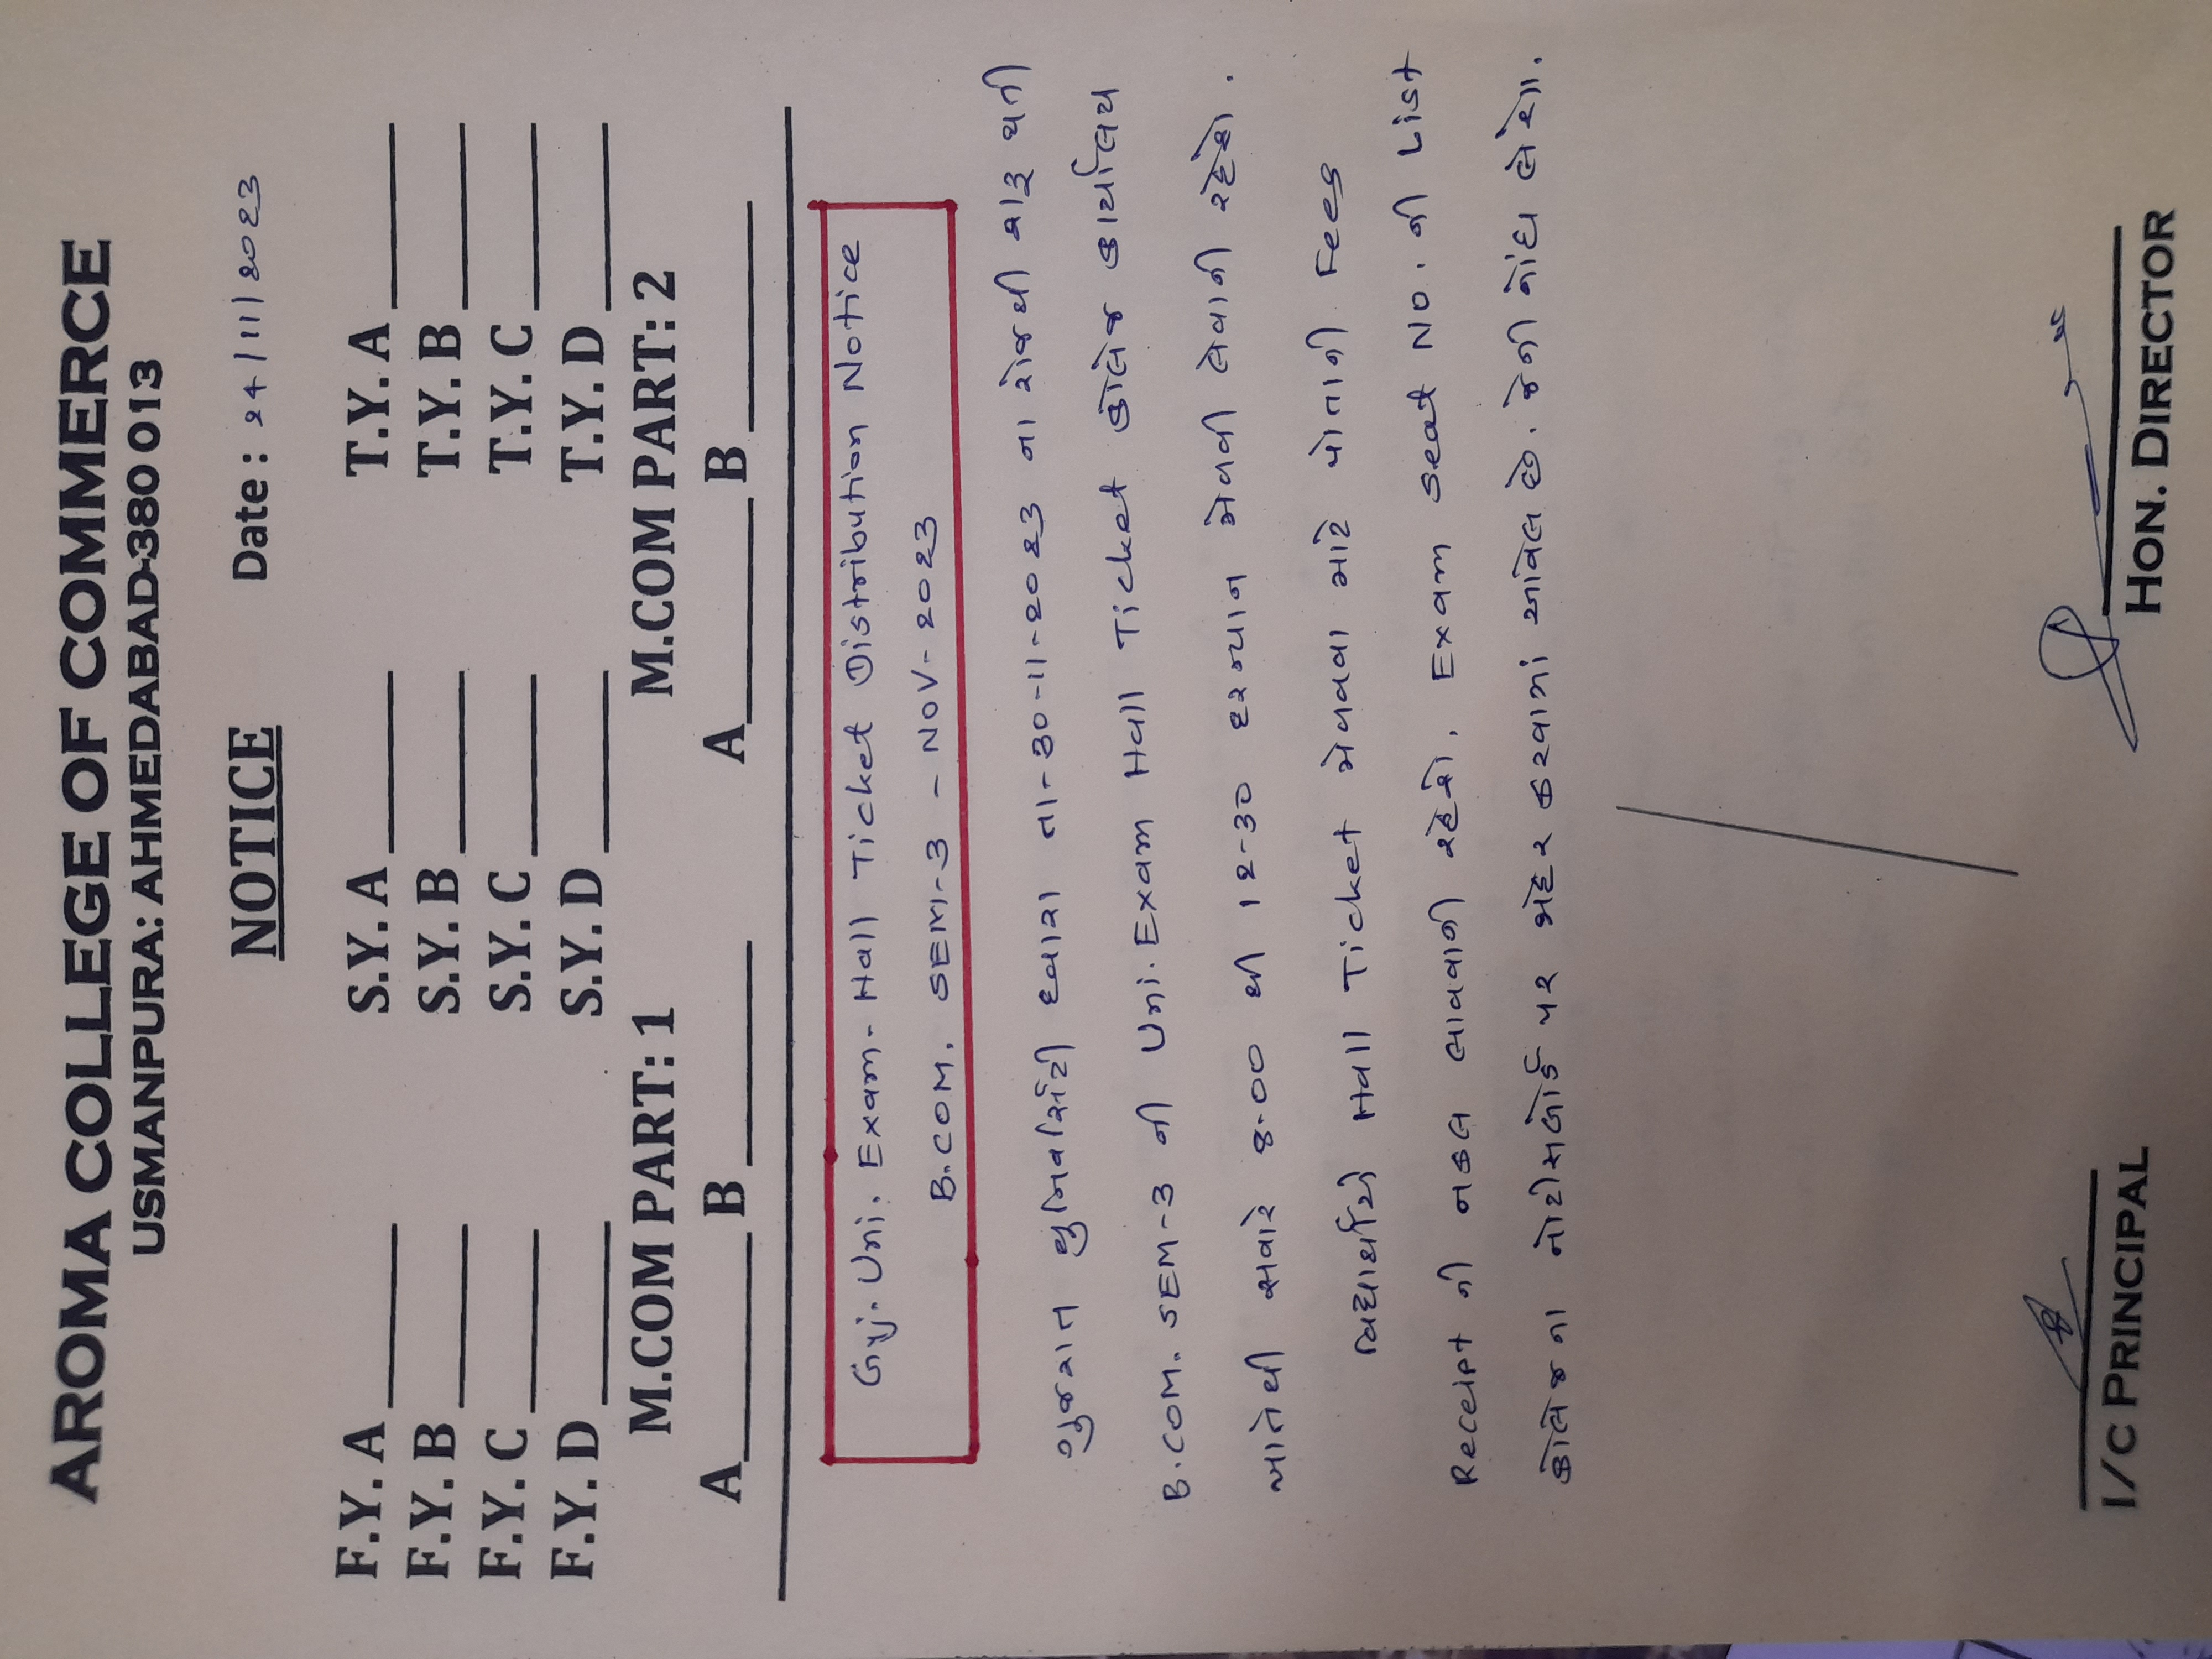 AROMA COLLEGE OF COMMERCE
USMANPURA: AHMEDABAD-380 013
NOTICE Date : 24/11/2023
F.Y. A ______ S.Y. A ______ T.Y. A ______
F.Y. B ______ S.Y. B ______ T.Y. B ______
F.Y. C ______ S.Y. C ______ T.Y. C ______
F.Y. D ______ S.Y. D ______ T.Y. D ______
M.COM PART: 1 M.COM PART: 2
A ______ B ______ A ______ B ______
Guj. Uni. Exam - Hall Ticket Distribution Notice
B.COM. SEM-3 - NOV-2023
ગુજરાત યુનિવર્સિટી દ્વારા તા-30-11-2023 ના રોજથી શરૂ થતી
B.COM. SEM-3 ની Uni. Exam Hall Ticket કોલેજ કાર્યાલય
ખાતેથી સવારે 8-00 થી 12-30 દરમ્યાન મેળવી લેવાની રહેશે.
વિદ્યાર્થીએ Hall Ticket મેળવવા માટે પોતાની Fees
Receipt ની નકલ લાવવાની રહેશે. Exam Seat No. ની List
કોલેજના નોટીસબોર્ડ પર જાહેર કરવામાં આવેલ છે. જેની નોંધ લેશો.
I/C PRINCIPAL HON. DIRECTOR